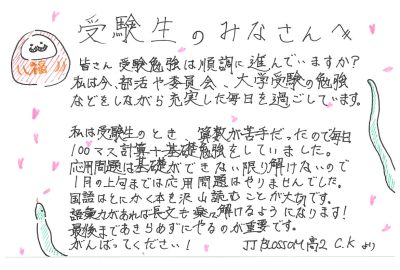 受験生のみなさんへ
福
皆さん 受験勉強は順調に進んでいますか?
私は今、部活や委員会、大学受験の勉強
などをしながら充実した毎日を過ごしています。
私は受験生のとき 算数が苦手だったので毎日
100マス計算+基礎勉強をしていました。
応用問題は基礎ができない限り解けないので
1月の上旬までは応用問題はやりませんでした。
国語はとにかく本を沢山読むことが大切です。
語彙力があれば長文も楽に解けるようになります!
最後まであきらめずにやるのが重要です。
がんばってください! JJ BLOSSOM 高2 C.K より